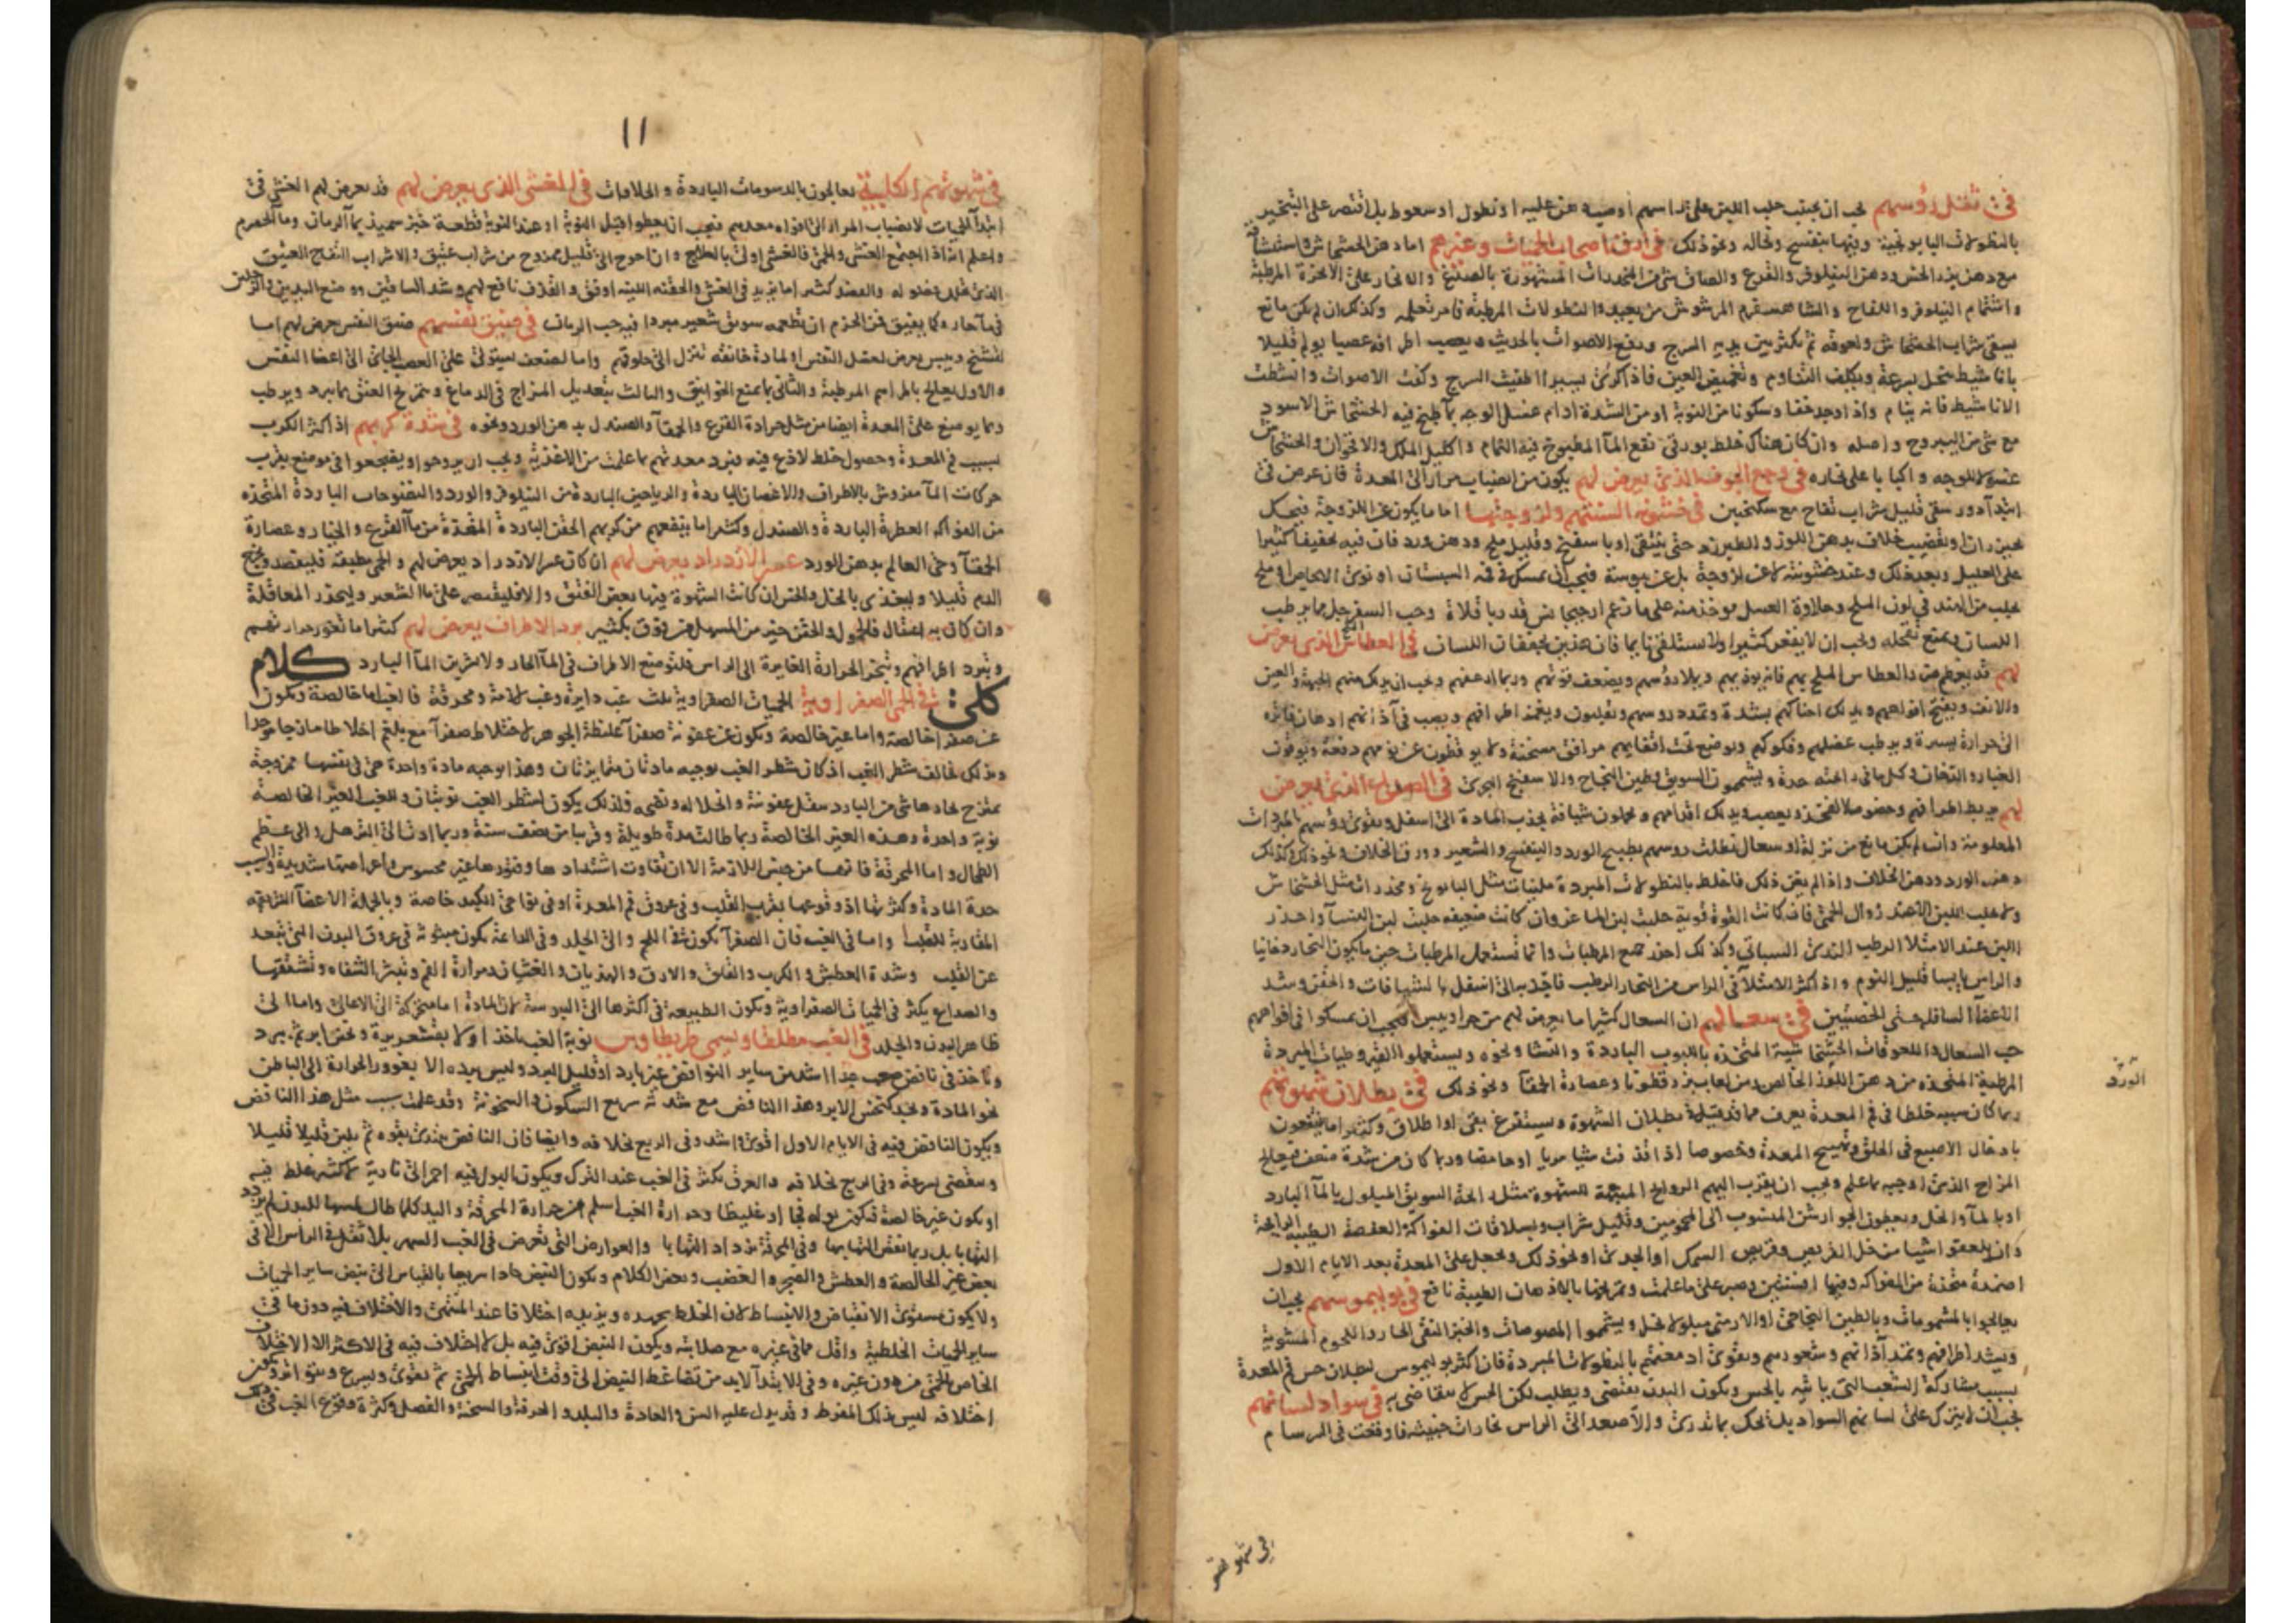 في ثقل رؤسهم يجب ان يجتنب حلب اللبن على راسهم او صب دهن عليه او نطول او سعوط بل اقتصر على التبخير
بالنطولات البابونجية وفيها بنفسج ونخالة ونحو ذلك في ارق اصحاب الحميات وغيرهم اما دهن الخشخاش واستنشاقه
مع دهن بزر الخس ودهن النيلوفر والقرع والصاق شئ من المخدرات المشهورة بالصدغ والانكباب على الابخرة المرطبة
واشتمام النيلوفر واللفاح والشاهسفرم المرشوش من بعيد والنطولات المرطبة فامر تعلمه وكذلك ان لم يكن مانع
يسقى شراب الخشخاش ولعوقه ثم يكثر بين يديه السرج ويرفع الاصوات بالحديث ويعصب اطرافه عصبا يولم قليلا
بانا شيط تنحل بسرعة ويكلف التناوم وتغميض العين فاذا كرى يسيرا اطفيت السرج وكفت الاصوات وانشطت
الاناشيط فانه ينام واذا وجد خفا وسكونا من النوبة او من الشدة ادام غسل الوجه بما طبخ فيه الخشخاش الاسود
مع شئ من اليبروح واصله وان كان هناك خلط بورقي نفع الماء المطبوخ فيه النمام واكليل الملك والاقحوان والخشخاش
غسولا للوجه واكبابا على بخاره في وجع الجوف الذي يعرض لهم يكون من انصباب مرار الى المعدة فان عرض في
ابتداء دور سقى قليل شراب تفاح مع سكنجبين في خشونة السنتهم ولزوجتها اما ما يكون عن اللزوجة فيحك
بخيزران او بقضيب خلاف بدهن اللوز والطبرزد حتى ينقى او باسفنج وقليل ملح ودهن ورد فان فيه تخفيفا كثيرا
على العليل وبعد ذلك وعند خشونته لا عن لزوجة بل عن يبوسة فيجب ان يمسك في فمه السبستان او نوى الاجاص او ملح
يجلب من الهند في لون الملح وحلاوة العسل يوخذ منه على ما زعم ارجيجانس قدر باقلاة وحب السفرجل مما يرطب
اللسان ويمنع تقحله ويجب ان لا يفغر كثيرا ولا يستلقى نايما فان هذين يجففان اللسان في العطاس الذي يعرض
لهم قد يعرض من دا العطاس الملح بهم فانه يوذيهم ويملا رؤسهم ويضعف قوتهم وربما ارعفهم ويجب ان يدلك منهم الجبهة والعين
والانف ويفتح افواههم ويدلك احناكهم بشدة وتمدد روسهم ويقلبون ويغمز اطرافهم ويصب في آذانهم ادهان فاترة
الى حرارة يسيرة ويرطب عضلهم وفكوكهم ويوضع تحت اقفايهم مرافق مسخنة ولا يوقظون عن نومهم دفعة ويوقون
الغبار والدخان وكل ما في رايحته حدة ويشمون السويق وطين النجاح والاسفنج البحري في الصداع الذي يعرض
لهم يربط اطرافهم وخصوصا الفخذ ويعصب ويدلك اقدامهم ويحملون شيافة يجذب المادة الى اسفل ويقوى رؤسهم بالمبردات
المعلومة وان لم يكن مانع من نزلة او سعال نطلت روسهم بطبيخ الورد والبنفسج والشعير وورق الخلاف ونحو ذلك وكذلك
دهن الورد ودهن الخلاف واذا لم يغن ذلك فاخلط بالنطولات المبردة ملينات مثل البابونج ومخدرات مثل الخشخاش
ولا تحلب اللبن الا عند زوال الحمى فان كانت القوة قوية حلبت لبن الماعز وان كانت ضعيفة حلبت لبن النساء واحذر
اللبن عند الامتلا الرطب الندى السباتي وكذلك احذر جميع المرطبات وانما تستعمل المرطبات حين ما يكون البخار دخانيا
والراس يابسا قليل النوم واذا كثر الامتلاء في الراس من البخار الرطب فاجذبه الى اسفل بالشيافات والحقن وشد
الاعضاء السافلة حتى الخصيتين في سعالهم ان السعال كثيرا ما يعرض لهم من حر او يبس فيجب ان يمسكوا في افواههم
حب السعال واللعوقات الخشخاشية المتخذة باللبوب الباردة والنشا ونحوه ويستعملوا القيروطيات المبردة
المرطبة المتخذة من دهن اللوز الخالص ومن لعاب بزر قطونا وعصارة الحمقاء ونحو ذلك في بطلان شهوتهم
ربما كان سببه خلطا في فم المعدة يعرف مما قد قيل في بطلان الشهوة ويستفرغ بقئ او اطلاق وكثيرا ما ينتفعون
بادخال الاصبع في الحلق وتهييج المعدة وخصوصا اذا قذفت شيا مريا او حامضا وربما كان من شدة ضعف فيعالج
المزاج الذي اوجبه بما علم ويجب ان يقرب اليهم الروايح المنبهة للشهوة مثل رايحة السويق المبلول بالماء البارد
او بالماء والخل ويعطون الجوارشن المنسوب الى المحمومين وقليل شراب وبسلاقات الفواكة العفصة الطيبة الرايحة
وان يلعقوا شيا من خل القريص وقريص السمك او الجدي او نحو ذلك ويجعل على المعدة بعد الايام الاول
اضمدة متخذة من الفواكه وفيها افسنتين وصبر على ما علمت وتمرخها بالادهان الطيبة نافع في بوليموسهم يجب ان
يعالجوا بالمشمومات وبالطين النجاحي او الارمني مبلولا بخل ويشموا المصوصات والخبز النقى الحار واللحوم المشوية
ويشد اطرافهم وتمد آذانهم وشعورهم ويقوى ادمغتهم بالنطولات المبردة فان اكثر بوليموس لبطلان حس فم المعدة
بسبب مشاركة الشعب التي ياتيه بالحس ويكون البدن يقتضى ويطلب لكن الحس لا يتقاضى به في سواد لسانهم
يجب ان لا يترك على لسانهم السواد بل يحك بما ندري والا صعد الى الراس بخارات خبيثه فاوقعت في السرسام
الورق
في شهوتهم
١١
في شهوتهم الكلبية يعالجون بالدسومات الباردة والحلاوات في الغشي الذي يعرض لهم قد يعرض لهم الغشى في
ابتداء الحميات لانصباب المرار الى افواه معدهم فيجب ان يعطوا قبل النوبة او عند النوبة قطعة خبز سميذ بماء الرمان وماء الحصرم
واعلم انه اذا اجتمع الغشى والحمى فالغشى اولى بالعلاج وان احوج الى قليل ممزوج من شراب عتيق والا شراب التفاح العتيق
الذي تحلل فضوله والفصد كثيرا ما يزيد في الغشى والحقنة اللينة اوفق والقذف نافع لهم وشد الساقين ووضع اليدين والرجلين
في ماء حار وكما يفيق فمن الحزم ان تطعمه سويق شعير مبردا فيه حب الرمان في ضيق نفسهم ضيق النفس يعرض لهم اما
لتشنج ويبس يعرض لعضل النفس او لمادة خانقة تنزل الى حلوقهم واما لضعف يستولى على العصب الجائى الى اعضا النفس
والاول يعالج بالمراهم المرطبة والثانى بما يمنع الخوانيق والثالث بتعديل المزاج في الدماغ وتمريخ العنق بما يبرد ويرطب
وبما يوضع على المعدة ايضا من مثل جرادة القرع والحمقاء والصندل بدهن الورد ونحوه في شدة كربهم اذا كثر الكرب
بسبب فم المعدة وحصول خلط لاذع فيه فبرد معدتهم بما علمت من الاغذية ويجب ان يروحوا ويضجعوا في موضع يقرب
حركات الماء مفروش بالاطراف والاغصان الباردة والرياحين الباردة من النيلوفر والورد والنضوحات الباردة المتخذة
من الفواكه العطرة الباردة والصندل وكثيرا ما ينفعهم من كربهم الحقن الباردة المتخذة من ماء القرع والخيار وعصارة
الحمقاء وحي العالم بدهن الورد عسر الازدراد يعرض لهم ان كان عسر الازدراد يعرض لهم والحمى مطبقة فليفصد ويخرج
الدم قليلا وليغذى بالخل والخس ان كانت الشهوة فيها بعض الفتق والا فليقتصر على ماء الشعير وليحذر المعاقلة
وان كان به اعتقال فالحمول والحقن خير من المسهل من فوق بكثير برد الاطراف يعرض لهم كثيرا ما تغور حرارتهم
وتبرد اطرافهم وتبخر الحرارة الغايرة الى الراس فلتوضع الاطراف في الماء الحار ولا يشربن الماء البارد كلام
كلي في الحمى الصفراوية الحميات الصفراوية ثلث غب دايرة وغب لازمة ومحرقة فالغب اما خالصة وتكون
عن صفرا خالصة واما غير خالصة وتكون عن عفونة صفراء غليظة الجوهر لاختلاط صفراء مع بلغم اختلاطا مازجا موحدا
وبذلك تخالف شطر الغب اذ كان شطر الغب يوجبه مادتان متمايزتان وهذا يوجبه مادة واحدة هي في نفسها ممزوجة
يمتزج بحادها شئ من البارد يثقل عفونته وانحلاله ونضجه فلذلك يكون لشطر الغب نوبتان وللغب الغير الخالصة
نوبة واحدة وهذه الغير الخالصة ربما طالت مدة طويلة وقريبا من نصف سنة وربما ادت الى الترهل والى عظم
الطحال واما المحرقة فانها من جنس اللازمة الا ان تفاوت اشتدادها وفتورها غير محسوس واعراضها شديدة والسبب
حدة المادة وكثرتها اذ وقوعها بقرب القلب وفي عروق فم المعدة او في نواحي الكبد خاصة وبالجملة الاعضاء الشريفة
المقاربة للقلب واما في الغب فان الصفراء تكون في اللحم والى الجلد وفي الدائمة تكون مبثوثة في عروق البدن التي تبعد
عن القلب وشدة العطش والكرب والقلق والارق والهذيان والغثيان ومرارة الفم وتبثر الشفاه وتشققها
والصداع يكثر في الحميات الصفراوية وتكون الطبيعة في اكثرها الى اليبوسة لان المادة اما متحركة الى الاعالى واما الى
ظاهر البدن والجلد في الغب مطلقا ويسمى طريطاوس نوبة الغب تاخذ اولا بقشعريرة ونخس ابر ثم يبرد
وتاخذ في نافض صعب جدا اشد من ساير النوافض غير بارد او قليل البرد وليس برده الا بغور الحرارة الى الباطن
نحو المادة ويجد كنخس الابر وهذا النافض مع شدته سريع السكون والسخونة وقد علمت سبب مثل هذا النافض
ويكون النافض فيه في الايام الاول اقوى واشد وفي الربع بخلافه وايضا فان النافض يبتدئ بقوة ثم يلين قليلا قليلا
وينقضى بسرعة وفي الربع بخلافه والعرق يكثر في الغب عند الترك ويكون البول فيه احمر الى نارية لا كثير غلظ فيه
او يكون غير خالصة فيكون بوله فجا او غليظا وحرارة الغب اسلم من حرارة المحرقة واليد كلما طال لمسها للبدن لم يزدد
التهابا بل ربما نقص التهابها وفي المحرقة يزداد التهابا والعوارض التي تعرض في الغب السهر بلا ثقل في الراس الا في
بعض غير الخالصة والعطش والضجر والغضب وبغض الكلام ويكون النبض حادا سريعا بالقياس الى نبض ساير الحميات
ولا يكون مستوى الانقباض والانبساط لان الخلط يجهده ويزيده اختلافا عند المنتهى والاختلاف فيه دون ما في
ساير الحميات الخلطية واقل مما في غيره مع صلابته ويكون النبض اقوى فيه بل لا اختلاف فيه في الاكثر الا الاختلاف
الخاص بالحمى من دون غيره وفي الابتداء لابد من تضاغط النبض الى وقت انبساط الحمى ثم يقوى ويسرع ويتواتر ويكون
اختلافه ليس بذلك المفرط وقد يدل عليه السن والعادة والبلد والحرفة والسحنة والفصل وكثرة وقوع الغب في ذلك